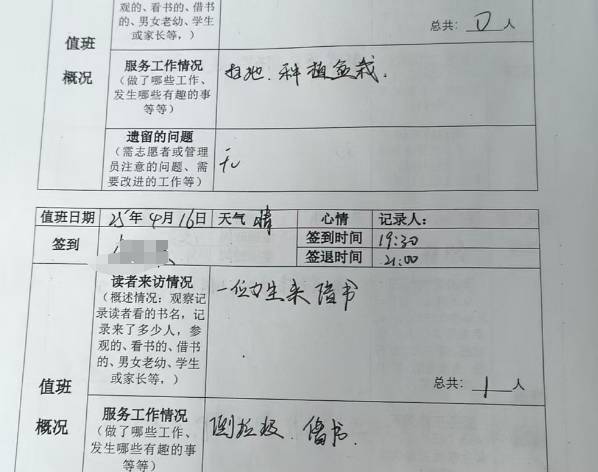 观的、看书的、借书
的、男女老幼、学生
或家长等，）
总共：0人
值班
概况
服务工作情况
（做了哪些工作、
发生哪些有趣的事
等等）
扫地、种植盆栽.
遗留的问题
（需志愿者或管理
员注意的问题、需
要改进的工作等）
无
值班日期 25年4月16日 天气 晴 心情 记录人：
签到 签到时间 19:30
签退时间 21:00
读者来访情况
（概述情况：观察记
录读者看的书名，记
录来了多少人，参
观的、看书的、借书
的、男女老幼、学生
或家长等，）
一位女生来借书
总共：1人
值班
概况
服务工作情况
（做了哪些工作、
发生哪些有趣的事
倒垃圾、借书.